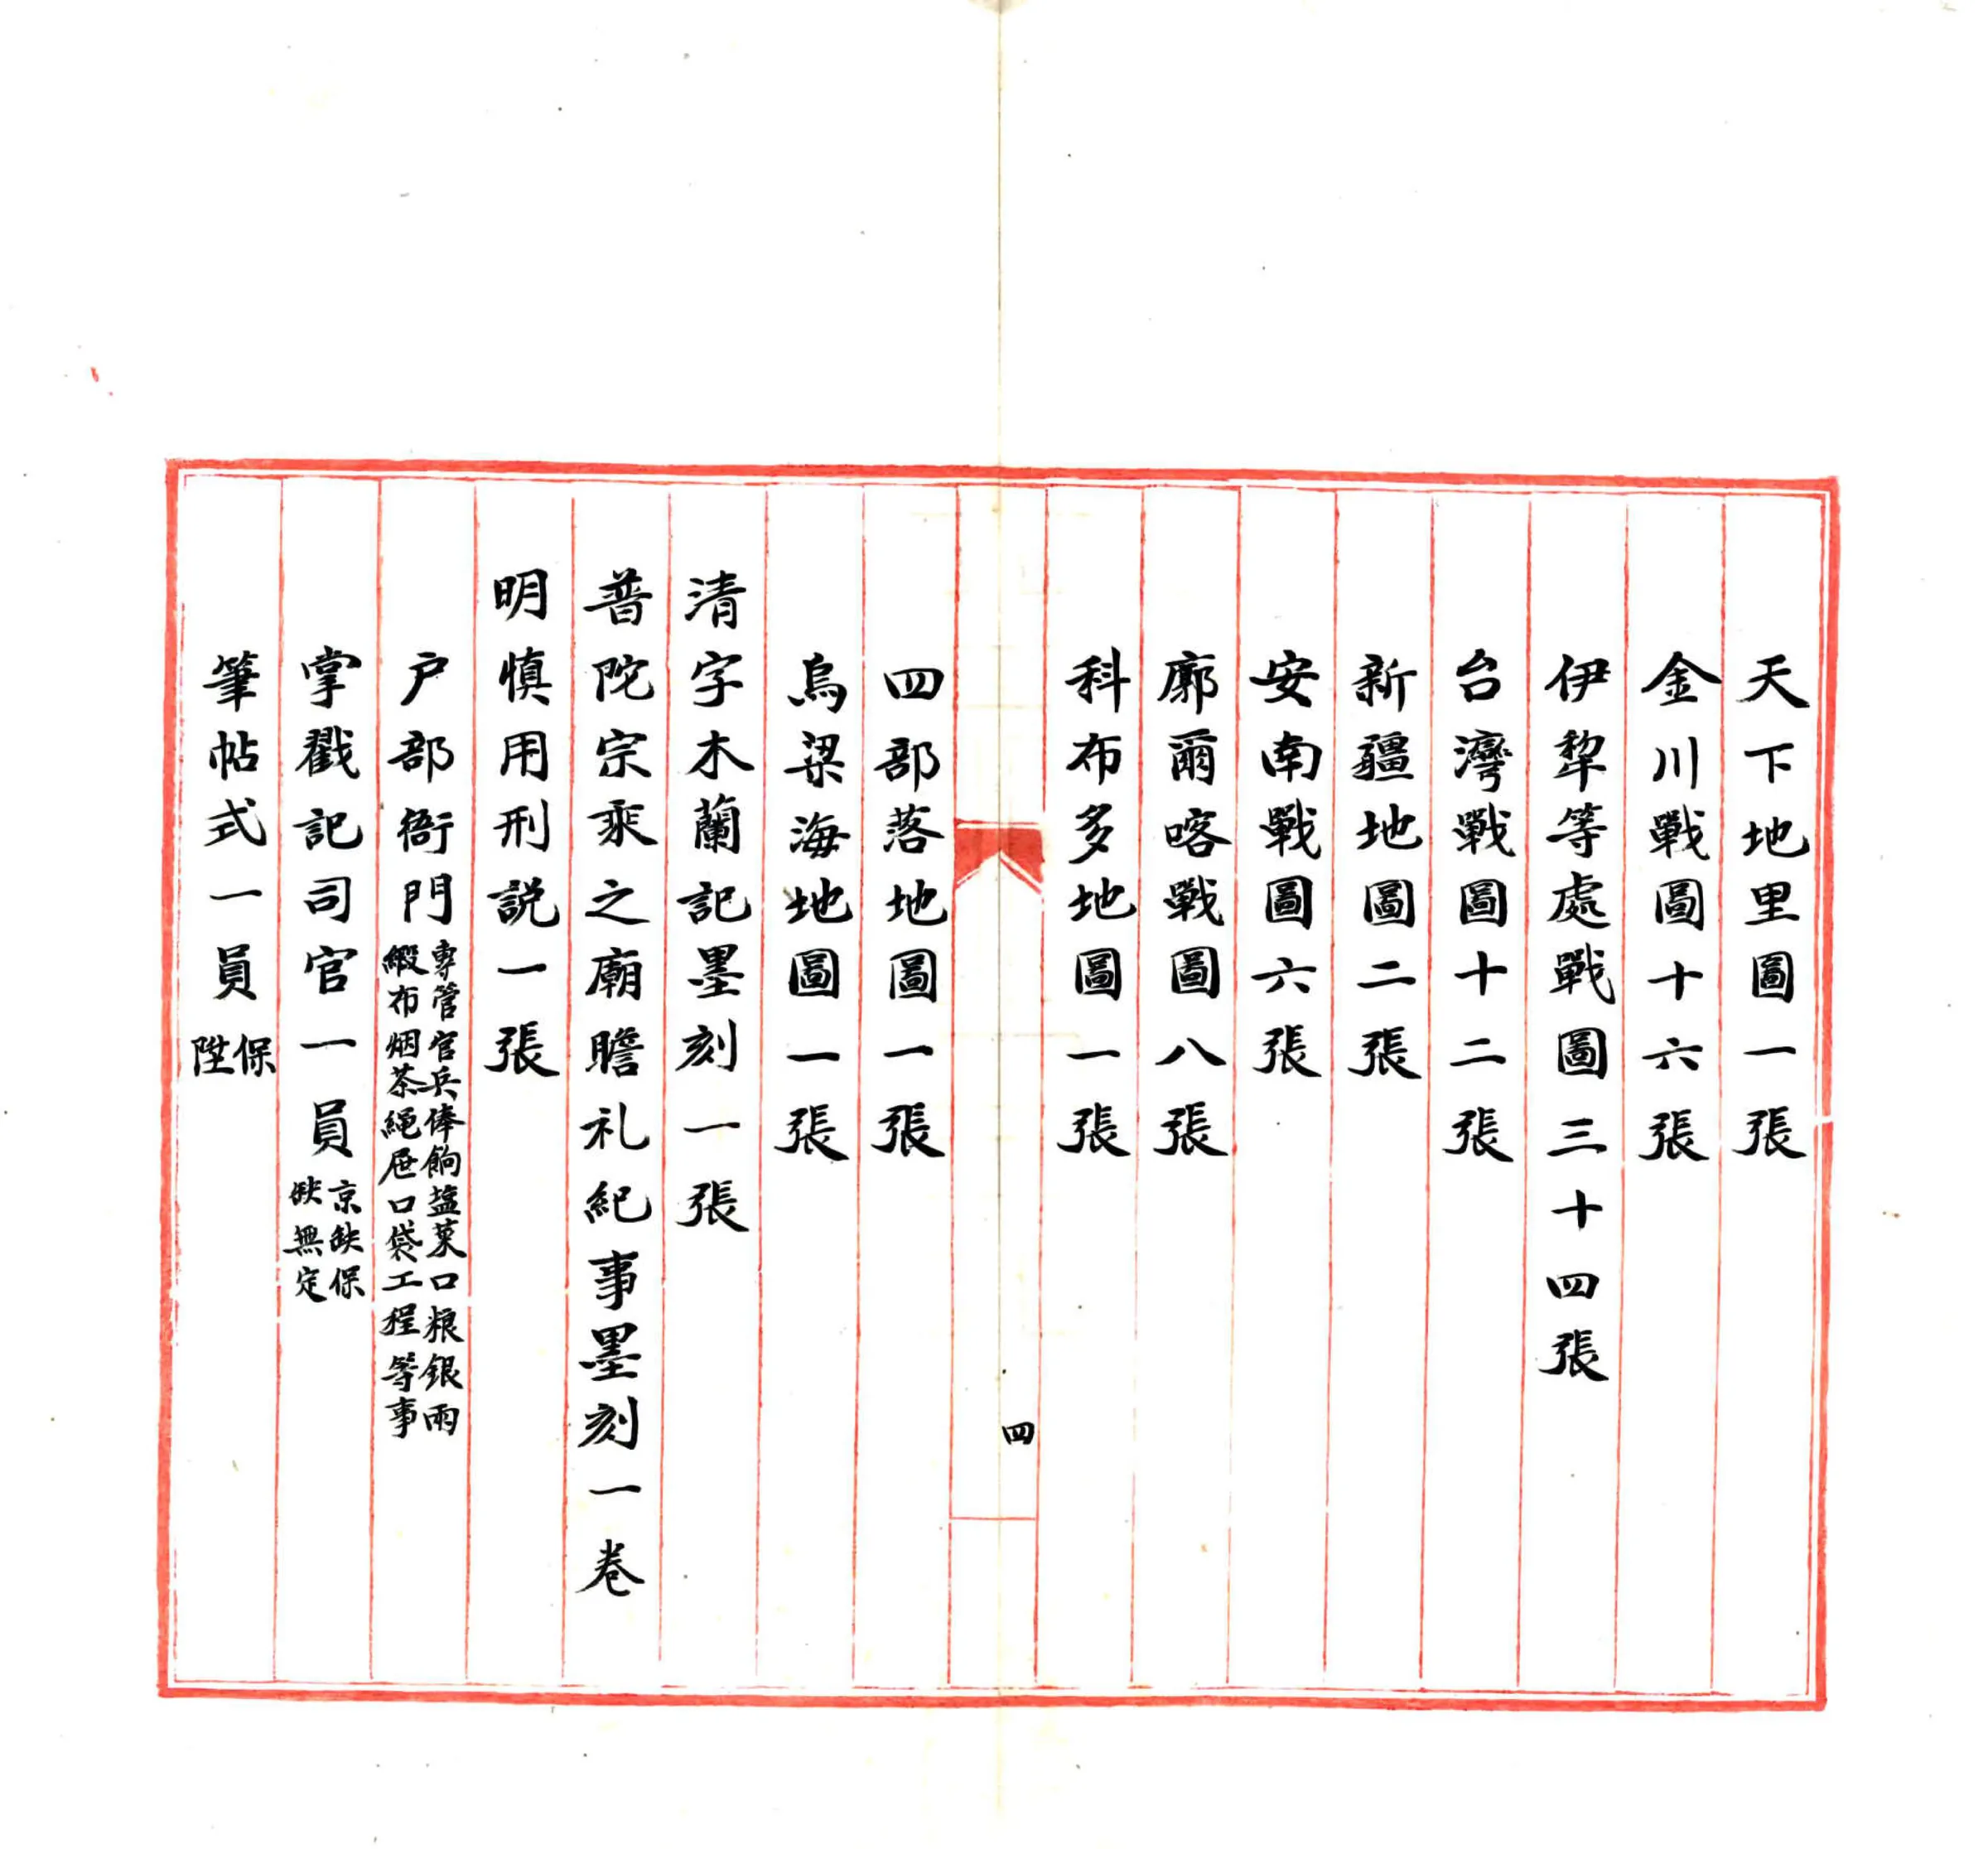 天下地里圖一張
金川戰圖十六張
伊犂等處戰圖三十四張
台灣戰圖十二張
新疆地圖二張
安南戰圖六張
廓爾喀戰圖八張
科布多地圖一張
四
四部落地圖一張
烏梁海地圖一張
清字木蘭記墨刻一張
普陀宗乘之廟瞻礼紀事墨刻一卷
明慎用刑説一張
户部衙門專管官兵俸餉塩菜口粮銀兩
緞布烟茶繩屉口袋工程等事
掌戳記司官一員京缺保
缺無定
筆帖式一員保
陞